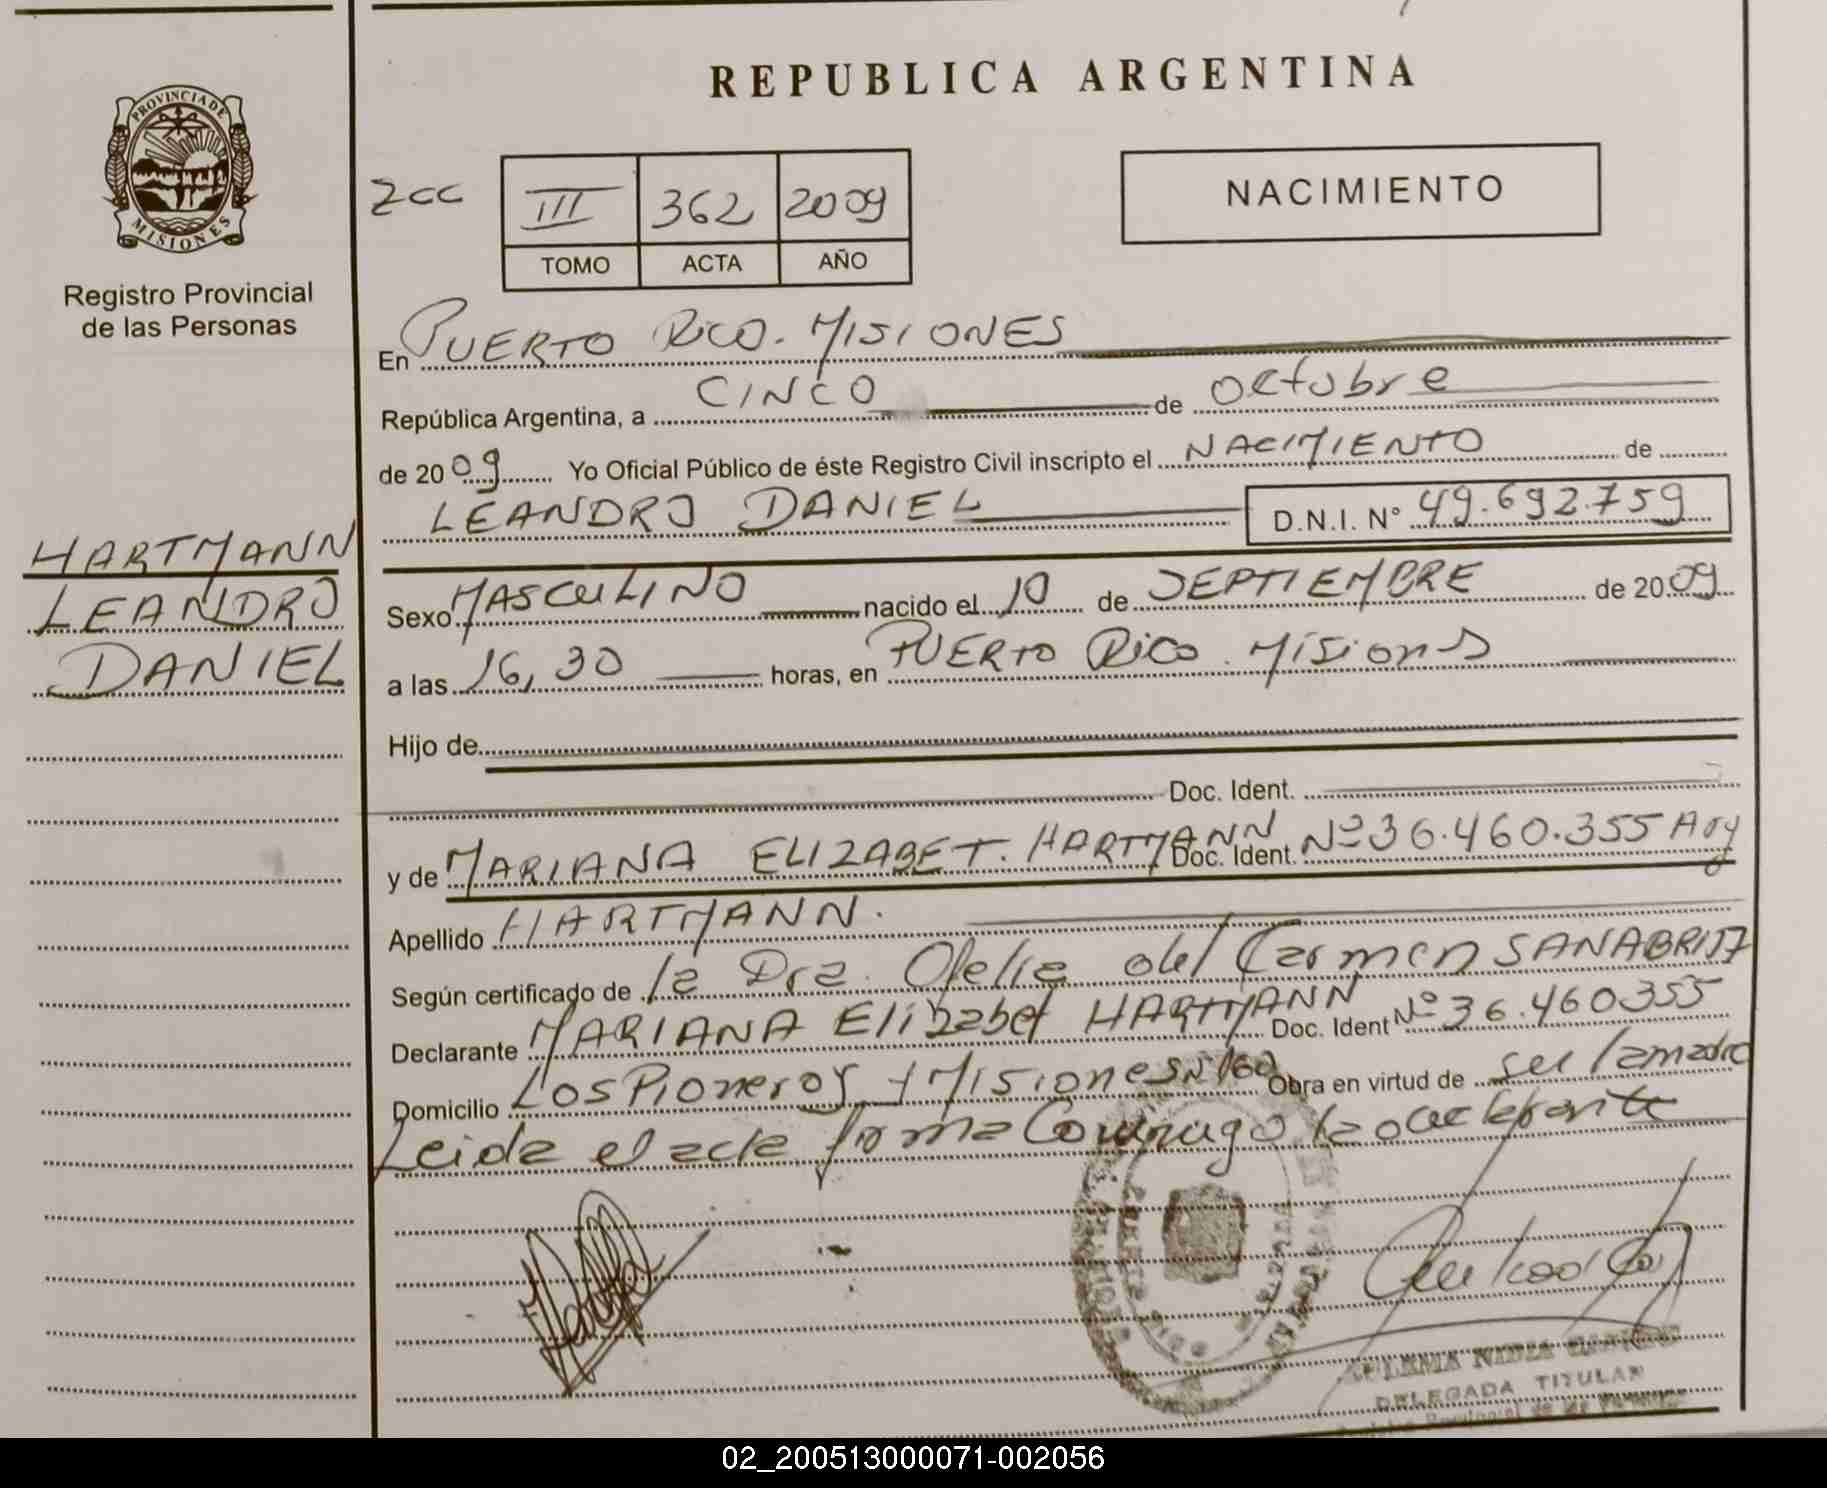 REPUBLICA ARGENTINA
PROVINCIA DE
MISIONES
Registro Provincial
de las Personas
2cc
III 362 2009
TOMO ACTA AÑO
NACIMIENTO
En PUERTO RICO. MISIONES
República Argentina, a CINCO de octubre
de 2009 Yo Oficial Público de éste Registro Civil inscripto el NACIMIENTO de
LEANDRO DANIEL D.N.I. N° 49.692.759
HARTMANN
LEANDRO
DANIEL
Sexo MASCULINO nacido el 10 de SEPTIEMBRE de 2009
a las 16,30 horas, en PUERTO RICO. Misiones
Hijo de
Doc. Ident.
y de MARIANA ELIZABET. HARTMANN Doc. Ident. Nº 36.460.355 Arg
Apellido HARTMANN.
Según certificado de la Dra. Ofelia del Carmen SANABRIA
Declarante MARIANA Elizabet HARTMANN Doc. Ident Nº 36.460355
Domicilio Los Pioneros y Misiones Nº 160 Obra en virtud de ser la madre
Leida el acta firma Conmigo la declarante
DELEGADA TITULAR
02_200513000071-002056